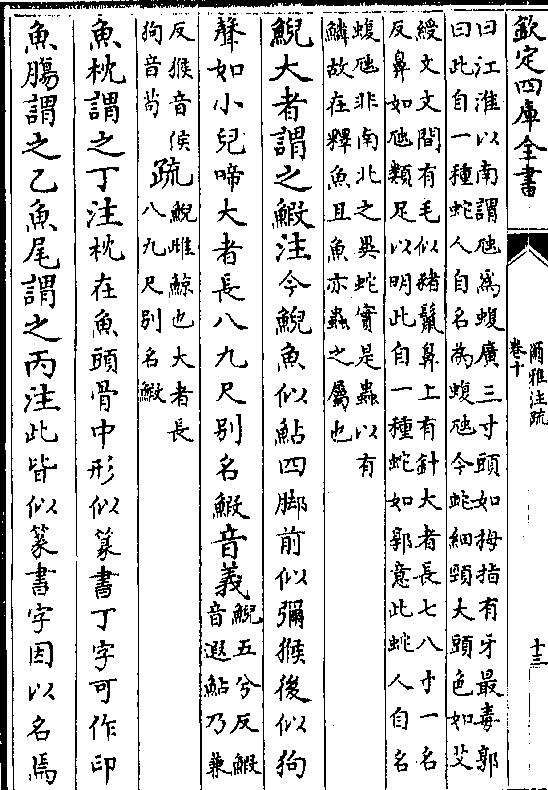 欽定四庫全書
爾雅注疏
卷十
十三
曰江淮以南謂虺為蝮廣三寸頭如拇指有牙最毒郭
曰此自一種蛇人自名為蝮虺今蛇細頸大頭色如艾
綬文文間有毛似豬鬣鼻上有針大者長七八寸一名
反鼻如虺類足以明此自一種蛇如郭意此蛇人自名
蝮虺非南北之異蛇實是蟲以有
鱗故在釋魚且魚亦蟲之屬也
鯢大者謂之鰕注今鯢魚似鮎四脚前似獼猴後似狗
聲如小兒啼大者長八九尺别名鰕音義
鯢五兮反鰕
音遐鮎乃兼
反猴音侯
狗音茍
疏
鯢雌鯨也大者長
八九尺别名鰕
魚枕謂之丁注枕在魚頭骨中形似篆書丁字可作印
魚腸謂之乙魚尾謂之丙注此皆似篆書字因以名焉